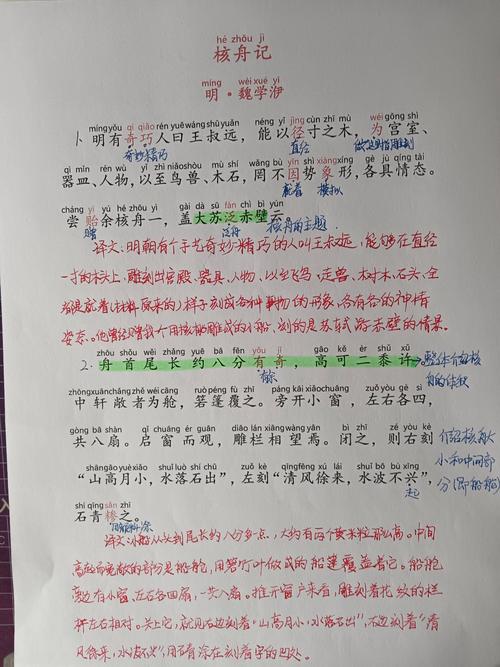 hé zhōu jì
核舟记
míng wèi xué yī
明·魏学洢
míng yǒu qí qiǎo rén yuē wáng shū yuǎn néng yǐ jìng cùn zhī mù wéi gōng shì
1、明有奇巧人曰王叔远，能以径寸之木，为宫室、
奇妙精巧 直径
qì mǐn rén wù yǐ zhì niǎo shòu mù shí wǎng bù yīn shì xiàng xíng gè jù qíng tài
器皿、人物，以至鸟兽、木石，罔不因势象形，各具情态。
就着 模拟
cháng yí yú hé zhōu yī gài dà sū fàn chì bì yún
尝贻余核舟一，盖大苏泛赤壁云。
赠 泛舟 核舟的主题
译文：明朝有个手艺奇妙精巧的人叫王叔远，能够在直径
一寸的木头上，雕刻出宫殿、器具、人物，以至飞鸟、走兽、树木、石头，全
都是就着(材料原来的)样子刻成各种事物的形象，各有各的神情
姿态。他曾经赠我个用核桃雕成的小船，刻的是苏轼游赤壁的情景。
zhōu shǒu wěi cháng yuē bā fēn yǒu jī gāo kě èr shǔ xǔ
2.舟首尾长约八分有奇，高可二黍许。整体介绍核舟的体积
zhōng xuān chǎng zhě wéi cāng ruò péng fù zhī páng kāi xiǎo chuāng zuǒ yòu gè sì
中轩敞者为舱，箬篷覆之。旁开小窗，左右各四，
gòng bā shàn qǐ chuāng ér guān diāo lán xiāng wàng yān bì zhī zé yòu kè
共八扇。启窗而观，雕栏相望焉。闭之，则右刻
介绍核舟大小和中间部分(即船舱)
shān gāo yuè xiǎo shuǐ luò shí chū zuǒ kè qīng fēng xú lái shuǐ bō bù xīng
“山高月小，水落石出”，左刻“清风徐来，水波不兴”，
起
shí qīng sǎn zhī
石青糁之。
译文：小船从头到尾长约八分多一点，大约有两个黄米粒那么高。中间
高起而宽敞的部分是船舱，用箬竹叶做成的船篷覆盖着它。船舱
旁边有小窗，左右各四扇，一共八扇。推开窗户来看，雕刻着花纹的栏
杆左右相对。关上它，就见右边刻着“山高月小，水落石出”，左边刻着“清
风徐来，水波不兴”，用石青涂在刻着字的凹处。